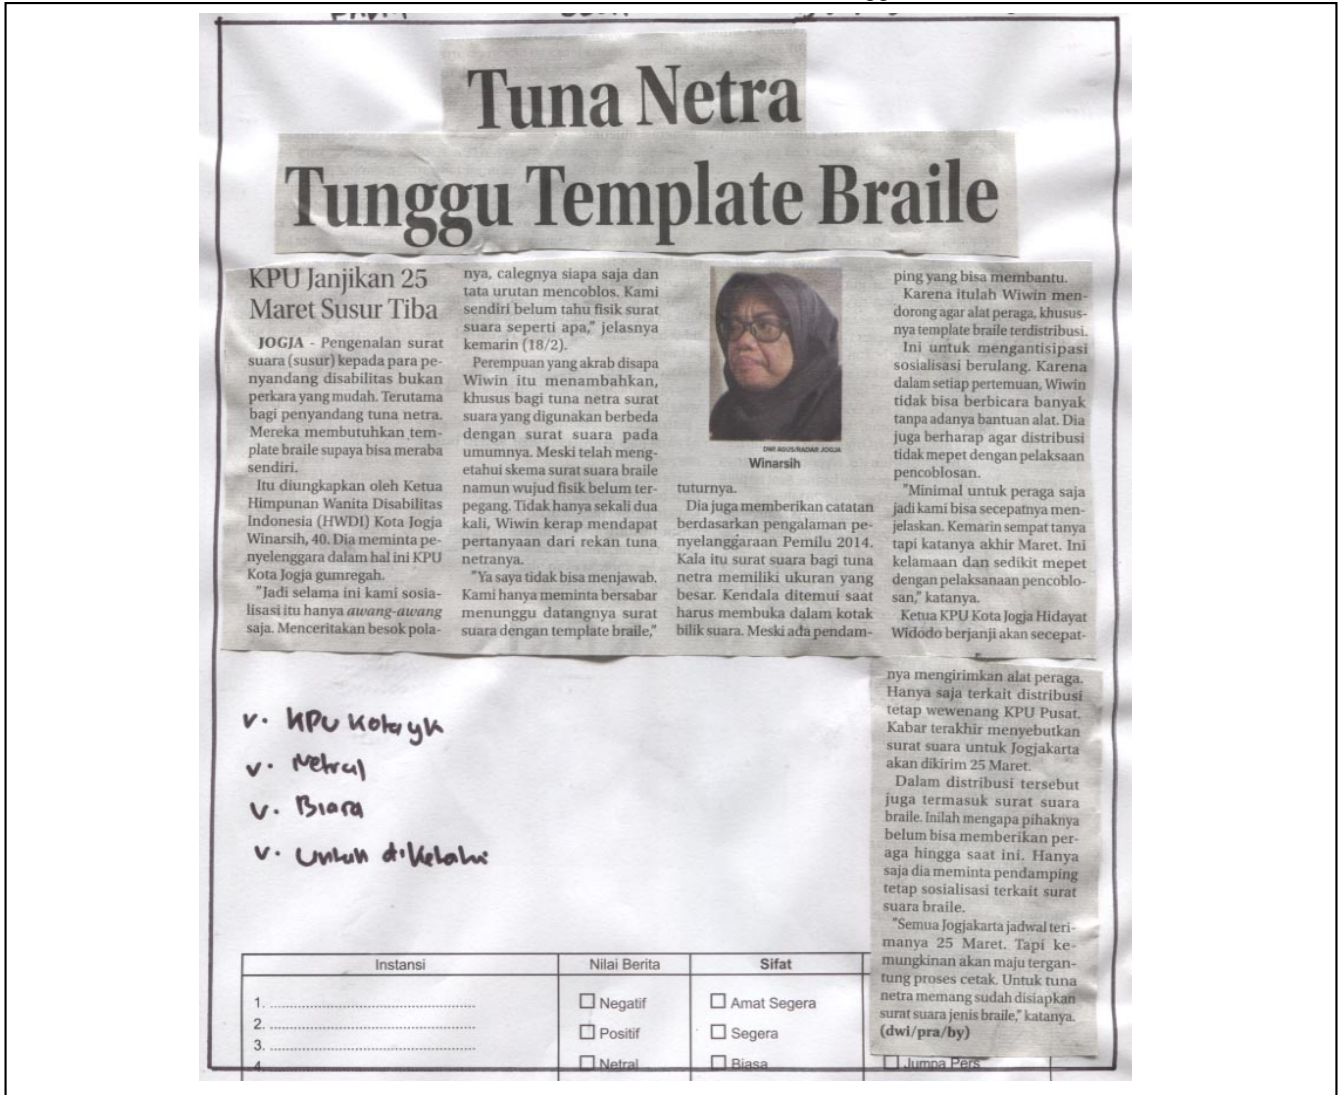 Tuna Netra
Tunggu Template Braile
KPU Janjikan 25
Maret Susur Tiba
JOGJA - Pengenalan surat
suara (susur) kepada para pe-
nyandang disabilitas bukan
perkara yang mudah. Terutama
bagi penyandang tuna netra.
Mereka membutuhkan tem-
plate braile supaya bisa meraba
sendiri.
Itu diungkapkan oleh Ketua
Himpunan Wanita Disabilitas
Indonesia (HWDI) Kota Jogja
Winarsih, 40. Dia meminta pe-
nyelenggara dalam hal ini KPU
Kota Jogja gumregah.
"Jadi selama ini kami sosia-
lisasi itu hanya awang-awang
saja. Menceritakan besok pola-
nya, calegnya siapa saja dan
tata urutan mencoblos. Kami
sendiri belum tahu fisik surat
suara seperti apa," jelasnya
kemarin (18/2).
Perempuan yang akrab disapa
Wiwin itu menambahkan,
khusus bagi tuna netra surat
suara yang digunakan berbeda
dengan surat suara pada
umumnya. Meski telah meng-
etahui skema surat suara braile
namun wujud fisik belum ter-
pegang. Tidak hanya sekali dua
kali, Wiwin kerap mendapat
pertanyaan dari rekan tuna
netranya.
"Ya saya tidak bisa menjawab.
Kami hanya meminta bersabar
menunggu datangnya surat
suara dengan template braile,"
DWI AGUS/RADAR JOGJA
Winarsih
tuturnya.
Dia juga memberikan catatan
berdasarkan pengalaman pe-
nyelanggaraan Pemilu 2014.
Kala itu surat suara bagi tuna
netra memiliki ukuran yang
besar. Kendala ditemui saat
harus membuka dalam kotak
bilik suara. Meski ada pendam-
ping yang bisa membantu.
Karena itulah Wiwin men-
dorong agar alat peraga, khusus-
nya template braile terdistribusi.
Ini untuk mengantisipasi
sosialisasi berulang. Karena
dalam setiap pertemuan, Wiwin
tidak bisa berbicara banyak
tanpa adanya bantuan alat. Dia
juga berharap agar distribusi
tidak mepet dengan pelaksaan
pencoblosan.
"Minimal untuk peraga saja
jadi kami bisa secepatnya men-
jelaskan. Kemarin sempat tanya
tapi katanya akhir Maret. Ini
kelamaan dan sedikit mepet
dengan pelaksanaan pencoblo-
san," katanya.
Ketua KPU Kota Jogja Hidayat
Widodo berjanji akan secepat-
nya mengirimkan alat peraga.
Hanya saja terkait distribusi
tetap wewenang KPU Pusat.
Kabar terakhir menyebutkan
surat suara untuk Jogjakarta
akan dikirim 25 Maret.
Dalam distribusi tersebut
juga termasuk surat suara
braile. Inilah mengapa pihaknya
belum bisa memberikan per-
aga hingga saat ini. Hanya
saja dia meminta pendamping
tetap sosialisasi terkait surat
suara braile.
"Semua Jogjakarta jadwal teri-
manya 25 Maret. Tapi ke-
mungkinan akan maju tergan-
tung proses cetak. Untuk tuna
netra memang sudah disiapkan
surat suara jenis braile," katanya.
(dwi/pra/by)
v. KPU Kota yk
v. Netral
v. Biasa
v. Untuk diketahui
Instansi Nilai Berita Sifat
1. Negatif Amat Segera
2. Positif Segera
3.
4. Netral Biasa Jumpa Pers